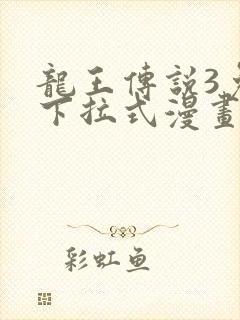 龍王傳説3
下拉式漫畫
彩虹鱼